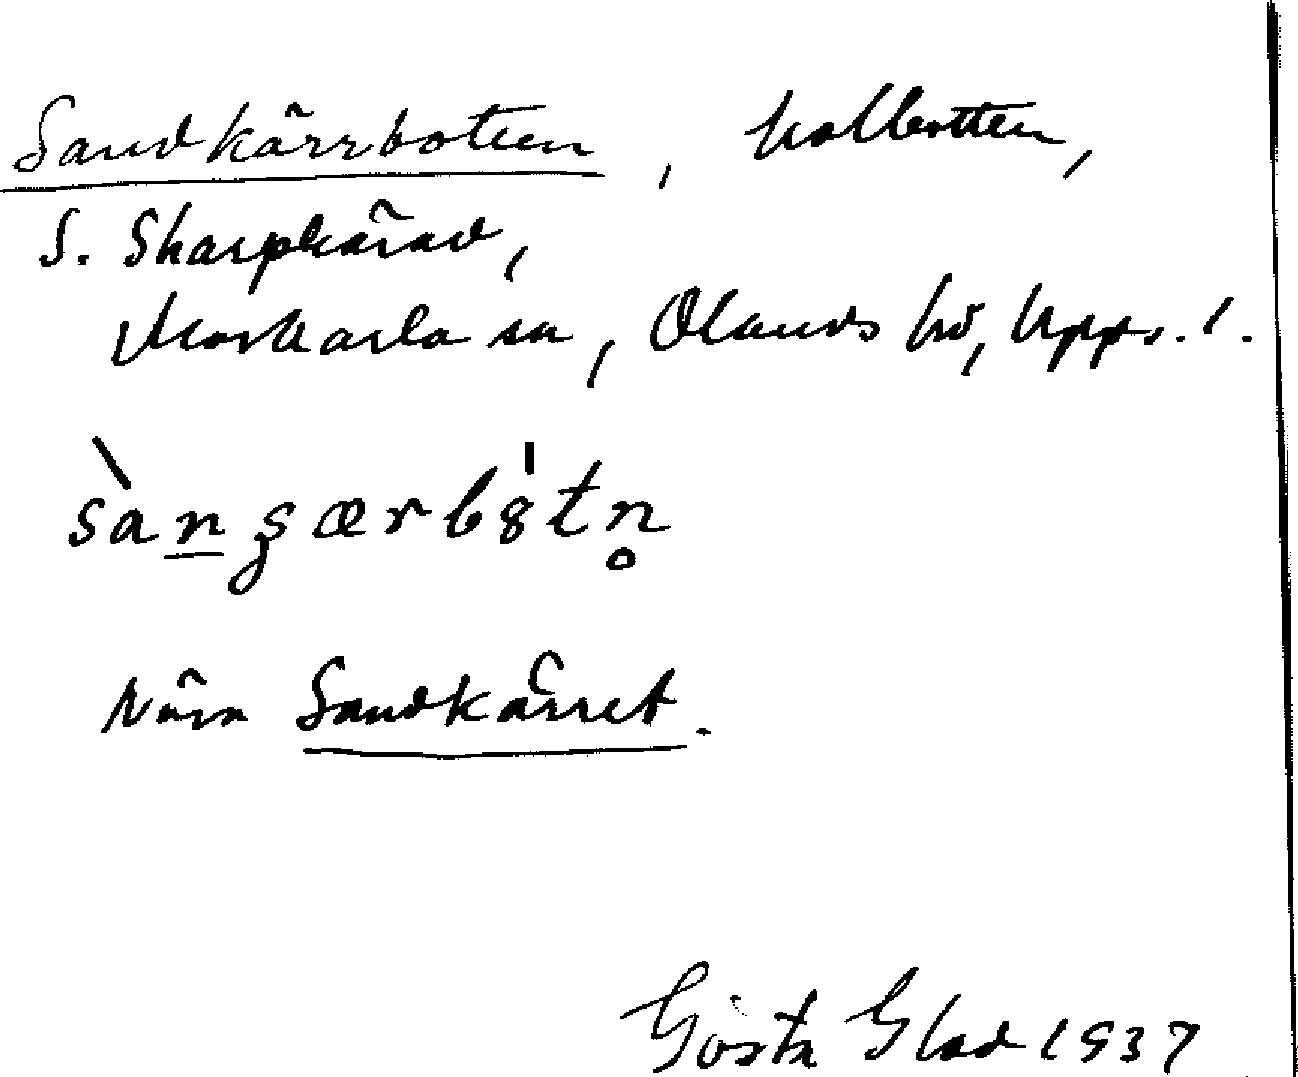 Sandkärrbotten, kolbotten,
S. Skarpkärad,
Morkarla sn, Olands hd, Upps. l.
sàn̲ʂærbȣ̍tn̥
Nära Sandkärret.
Gösta Glad 1937